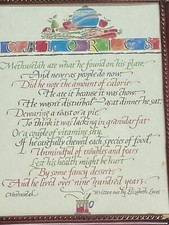 EAT CORRECTLY
Methuselah ate what he found on his plate
And never as people do now,
Did he note the amount of calorie—
He ate it because it was chow.
He wasn't disturbed as at dinner he sat,
Devouring a roast or a pie,
To think it was lacking in granular fat
Or a couple of vitamins shy.
He carefully chewed each species of food,
Unmindful of troubles and fears
Lest his health might be hurt
By some fancy desserts
And he lived over nine hundred years.